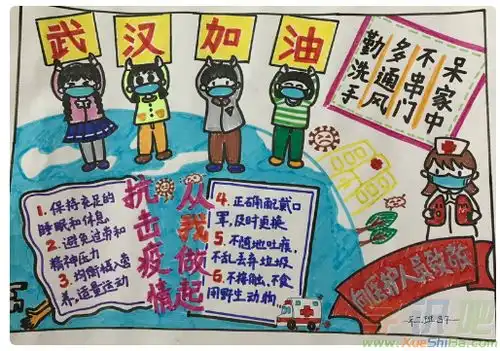 武汉加油
呆家中
不串门
多通风
勤洗手
抗击疫情
从我做起
1. 保持充足的
睡眠和休息。
2. 避免过劳和
精神压力
3. 均衡摄入营
养,适量运动
4. 正确配戴口
罩,及时更换
5. 不随地吐痰,
不乱丢弃垃圾
6. 不接触、不食
用野生动物
向医护人员致敬
www.XueShiBa.com